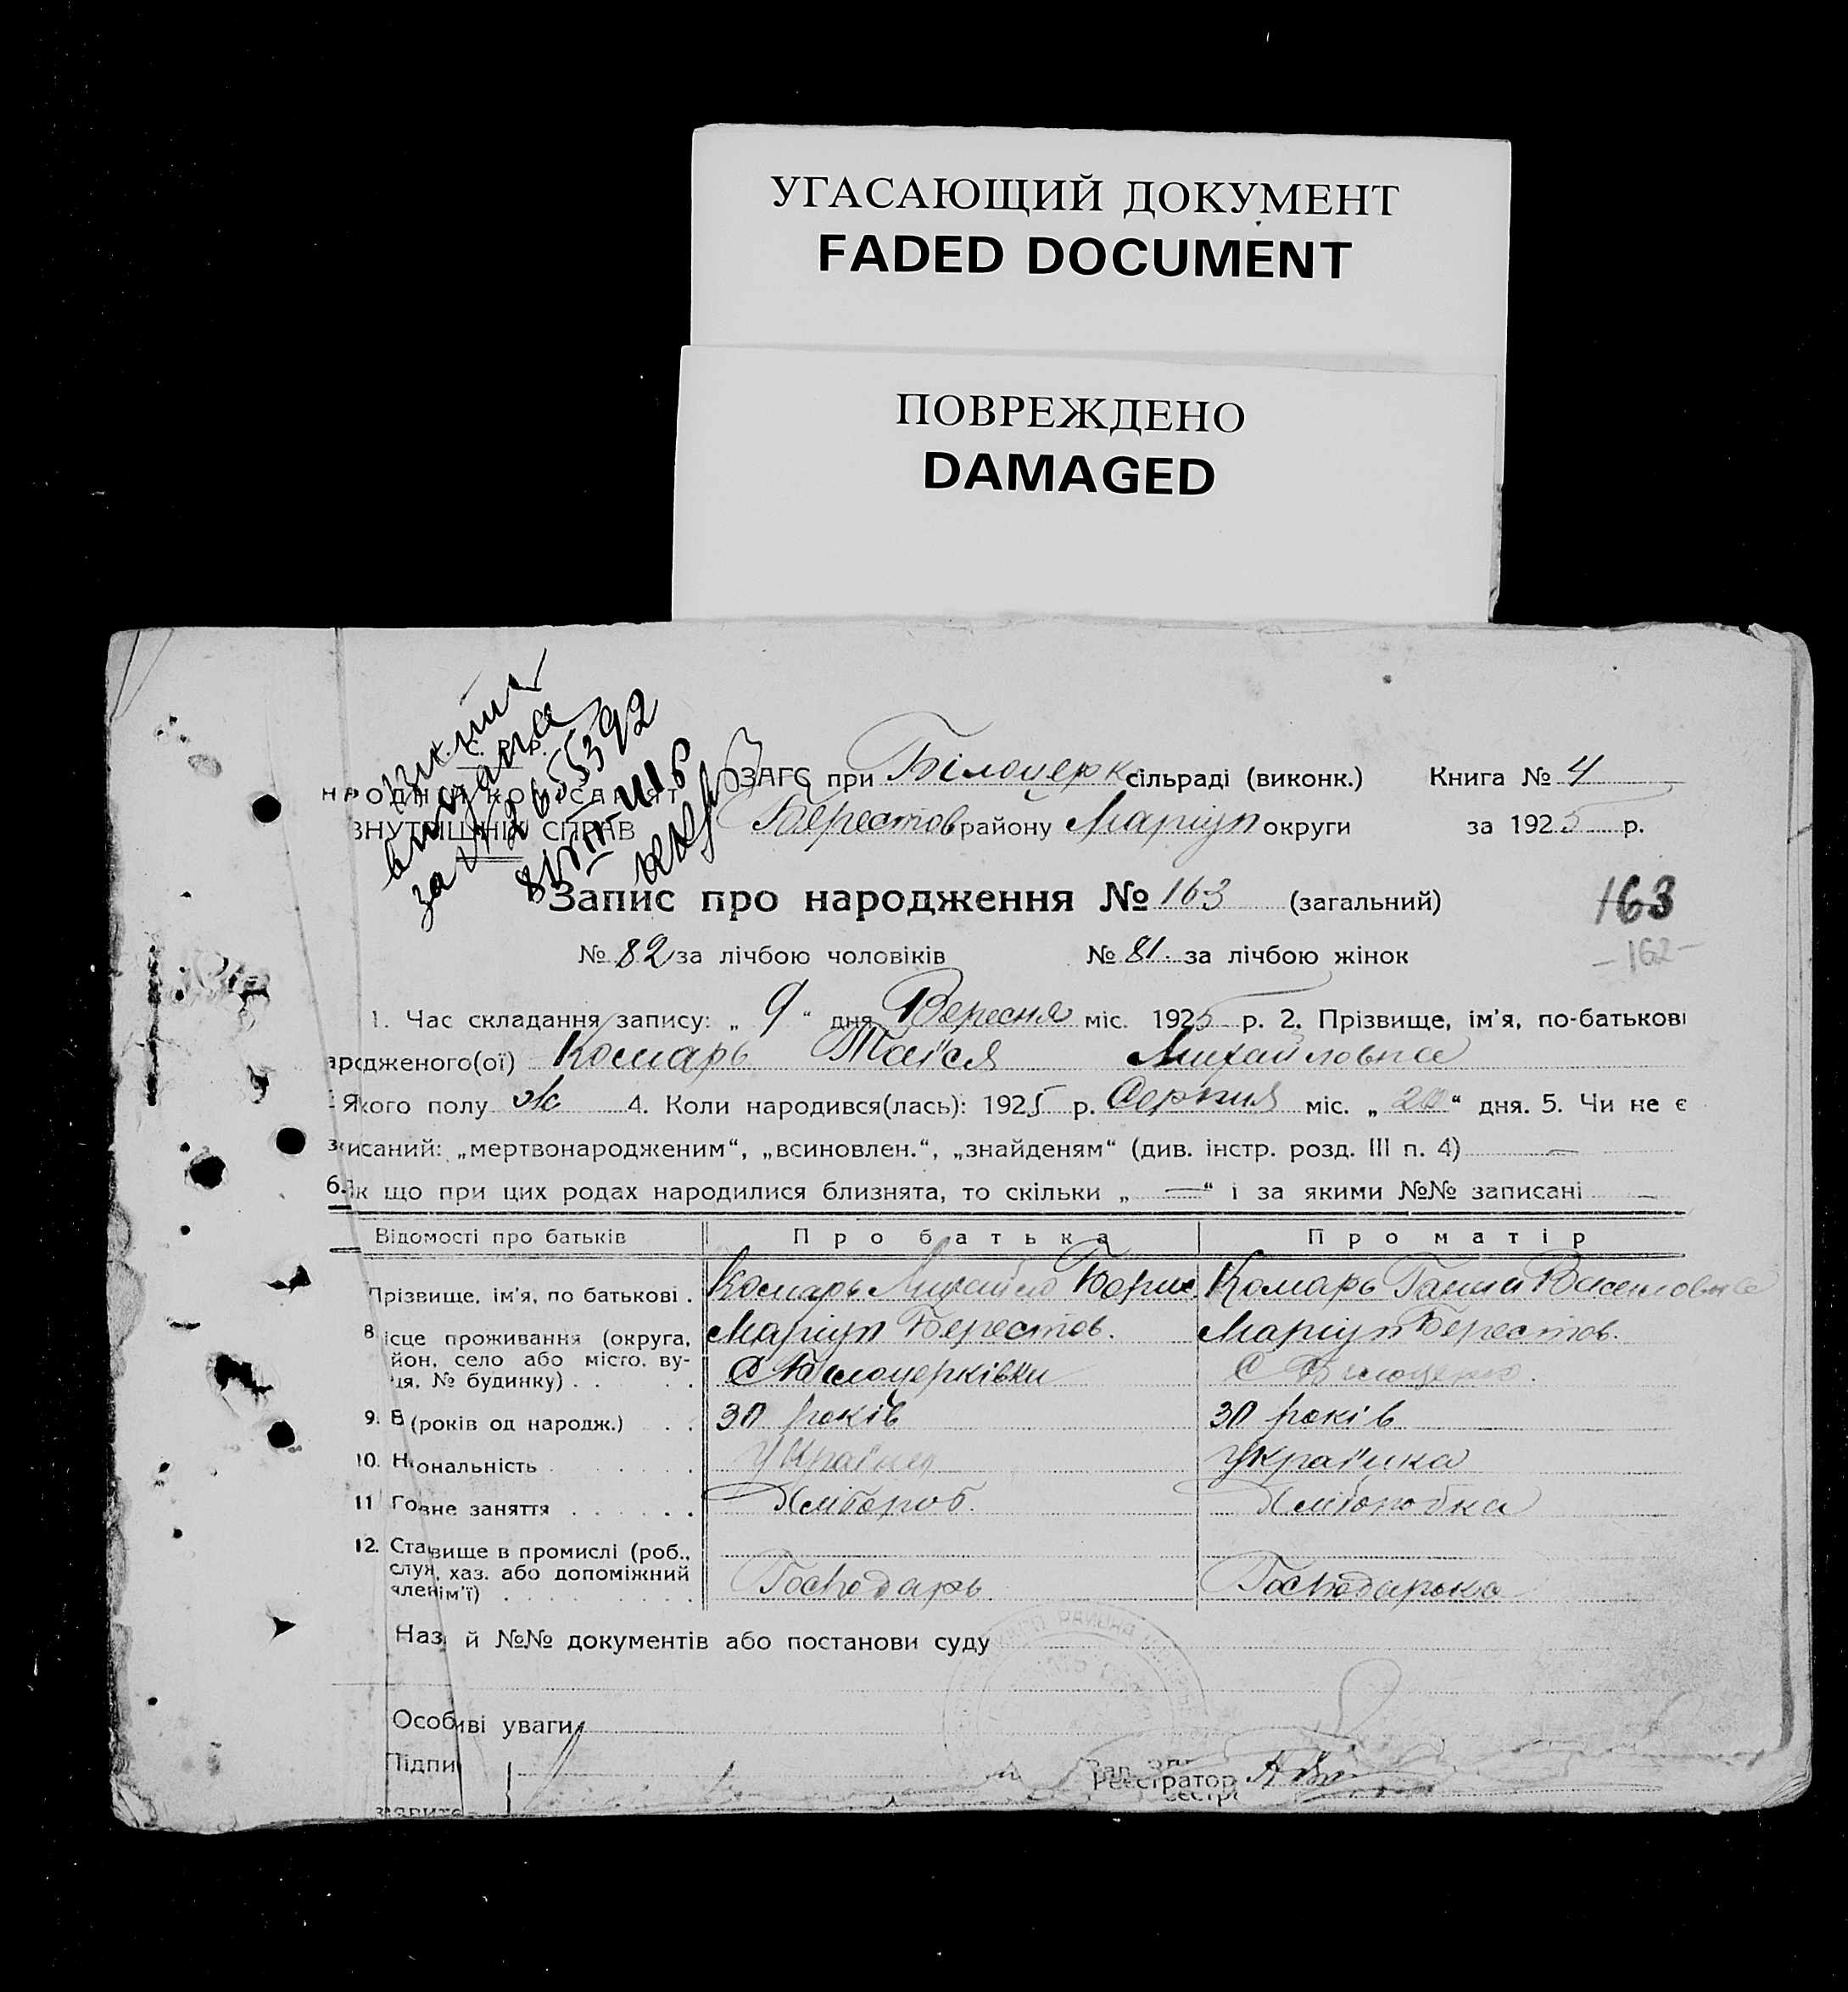 УГАСАЮЩИЙ ДОКУМЕНТ
FADED DOCUMENT
ПОВРЕЖДЕНО
DAMAGED
видана
за № 265392
ЗАГС при Білоцерк сільраді (виконк.) Книга № 4
НАРОДНІЙ КОМІСАРІЯТ
ВНУТРІШНІХ СПРАВ
Берестов району Маріуп округи за 1925 р.
Запис про народження № 163 (загальний) 163
№ 82 за лічбою чоловіків № 81. за лічбою жінок -162-
1. Час складання запису: „ 9 “ дня Вересня міс. 1925 р. 2. Прізвище, ім'я, по-батькові
ародженого(ої) Комарь Таїся Михайловна
Якого полу ж 4. Коли народився(лась): 1925 р. Серпня міс. „ 20 “ дня. 5. Чи не є
записаний: „мертвонародженим“, „всиновлен.“, „знайденям“ (див. інстр. розд. III п. 4) —
6. Як що при цих родах народилися близнята, то скільки „ — “ і за якими №№ записані —
Відомості про батьків Про батька Про матір
Прізвище, ім'я, по батькові . Комарь Михайло Борис. Комарь Ганна Василовна
8. ісце проживання (округа, Маріуп Берестов. Маріуп Берестов.
йон, село або місто, ву-
ця, № будинку) . . . . С Білоцерківки С Білоцерк.
9. В (років од народж.) . . 30 років 30 років
10. Національність . . . . . Українец Українка
11 Го вне заняття . . . . . . Хлібороб. Хліборобка
12. Становище в промислі (роб.,
служ, хаз. або допоміжний
член сім'ї) . . . . . . . Господарь. Господарька
Наз й №№ документів або постанови суду
Особливі уваги
Підпи
Реєстратор